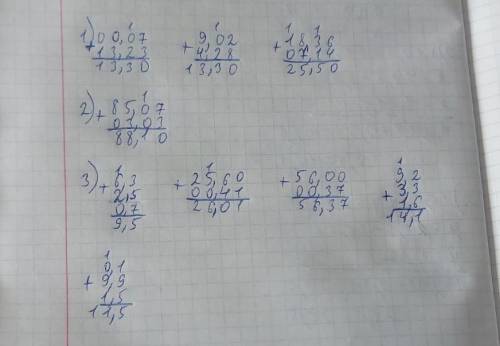 1) + 00,07 + 9,02 + 18,36
13,23 4,28 07,14
13,30 13,30 25,50
2) + 85,07
03,03
88,10
3) + 6,3 + 25,60 + 56,00 + 9,2
2,5 00,41 00,37 3,3
0,7 26,01 56,37 1,6
9,5 14,1
+ 0,1
9,9
1,5
11,5